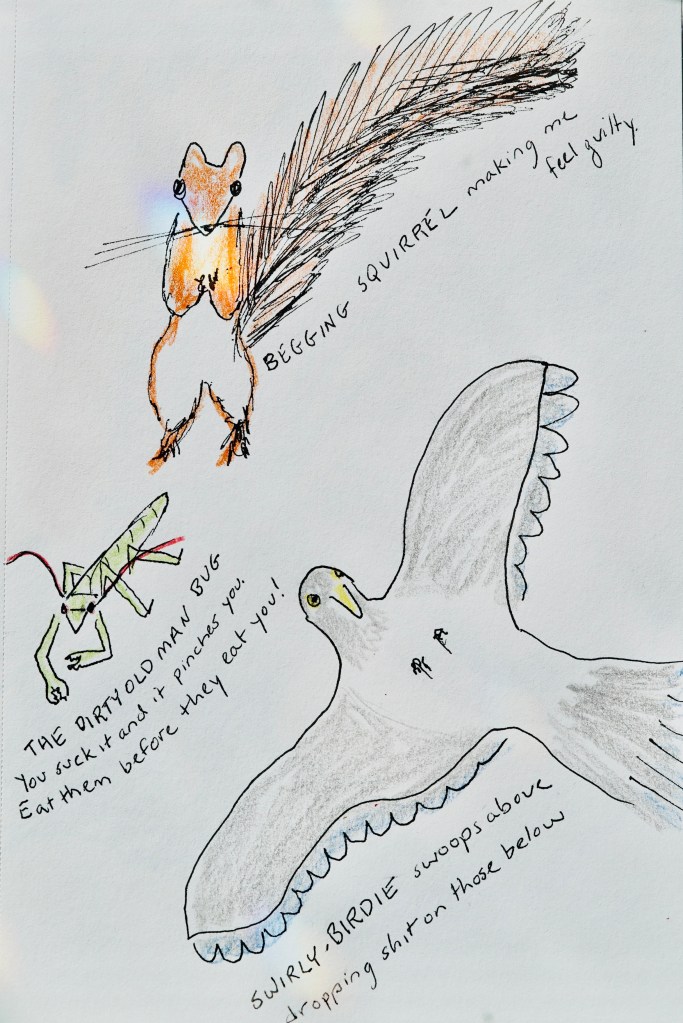 BEGGING SQUIRREL making me
feel guilty.
THE DIRTY OLD MAN BUG
You suck it and it pinches you.
Eat them before they eat you!
SWIRLY-BIRDIE swoops above
dropping shit on those below